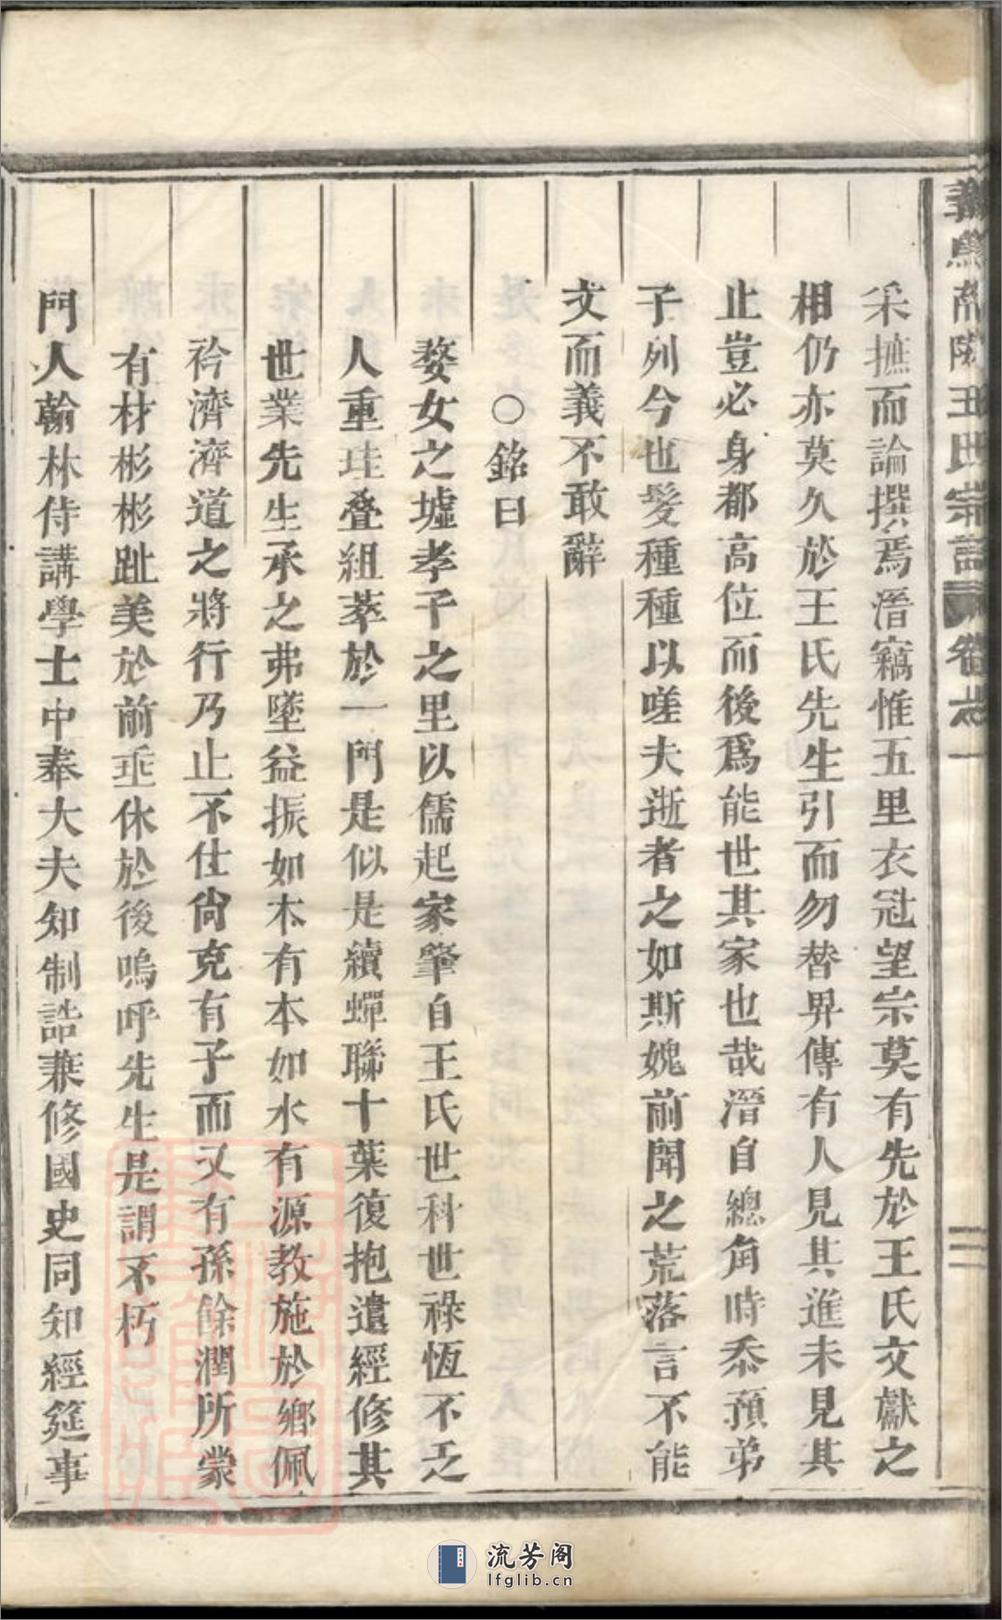 義烏鳳林王氏宗譜 卷之一
采摭而論撰焉溍竊惟五里衣冠望宗莫有先於王氏文獻之
相仍亦莫久於王氏先生引而勿替畀傳有人見其進未見其
止豈必身都高位而後爲能世其家也哉溍自總角時忝預弟
子列今也髮種種以嗟夫逝者之如斯媿前聞之荒落言不能
文而義不敢辭
○銘曰
婺女之墟孝子之里以儒起家肇自王氏世科世祿恆不乏
人重珪疊組萃於一門是似是續蟬聯十葉復抱遺經修其
世業先生承之弗墜益振如木有本如水有源教施於鄉佩
衿濟濟道之將行乃止不仕尙克有子而又有孫餘潤所棠
有材彬彬趾美於前垂休於後嗚呼先生是謂不朽
門人翰林侍講學士中奉大夫知制誥兼修國史同知經筵事
流芳阁
lfglib.cn